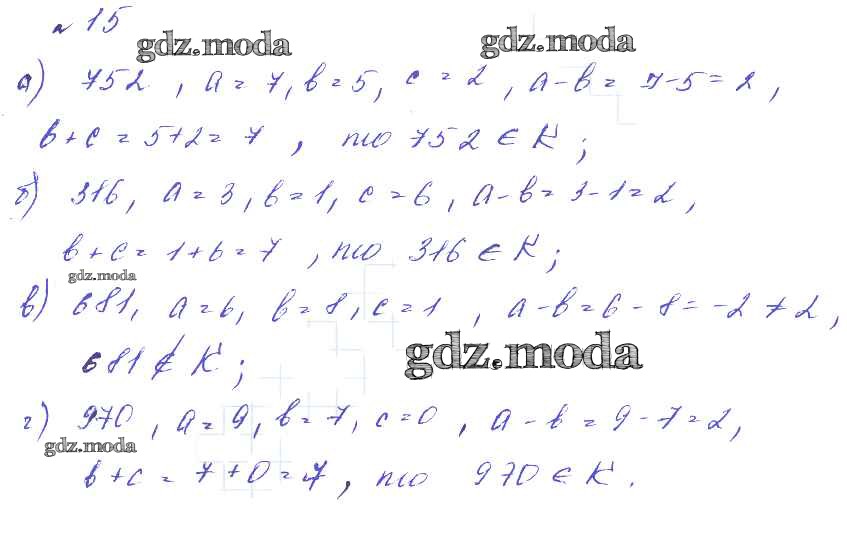 № 15
gdz.moda gdz.moda
а) 752, a = 7, b = 5, c = 2, a - b = 7 - 5 = 2,
b + c = 5 + 2 = 7, то 752 ∈ K;
б) 316, a = 3, b = 1, c = 6, a - b = 3 - 1 = 2,
b + c = 1 + 6 = 7, то 316 ∈ K;
gdz.moda
в) 681, a = 6, b = 8, c = 1, a - b = 6 - 8 = -2 ≠ 2,
gdz.moda
681 ∉ K;
г) 970, a = 9, b = 7, c = 0, a - b = 9 - 7 = 2,
gdz.moda
b + c = 7 + 0 = 7, то 970 ∈ K.